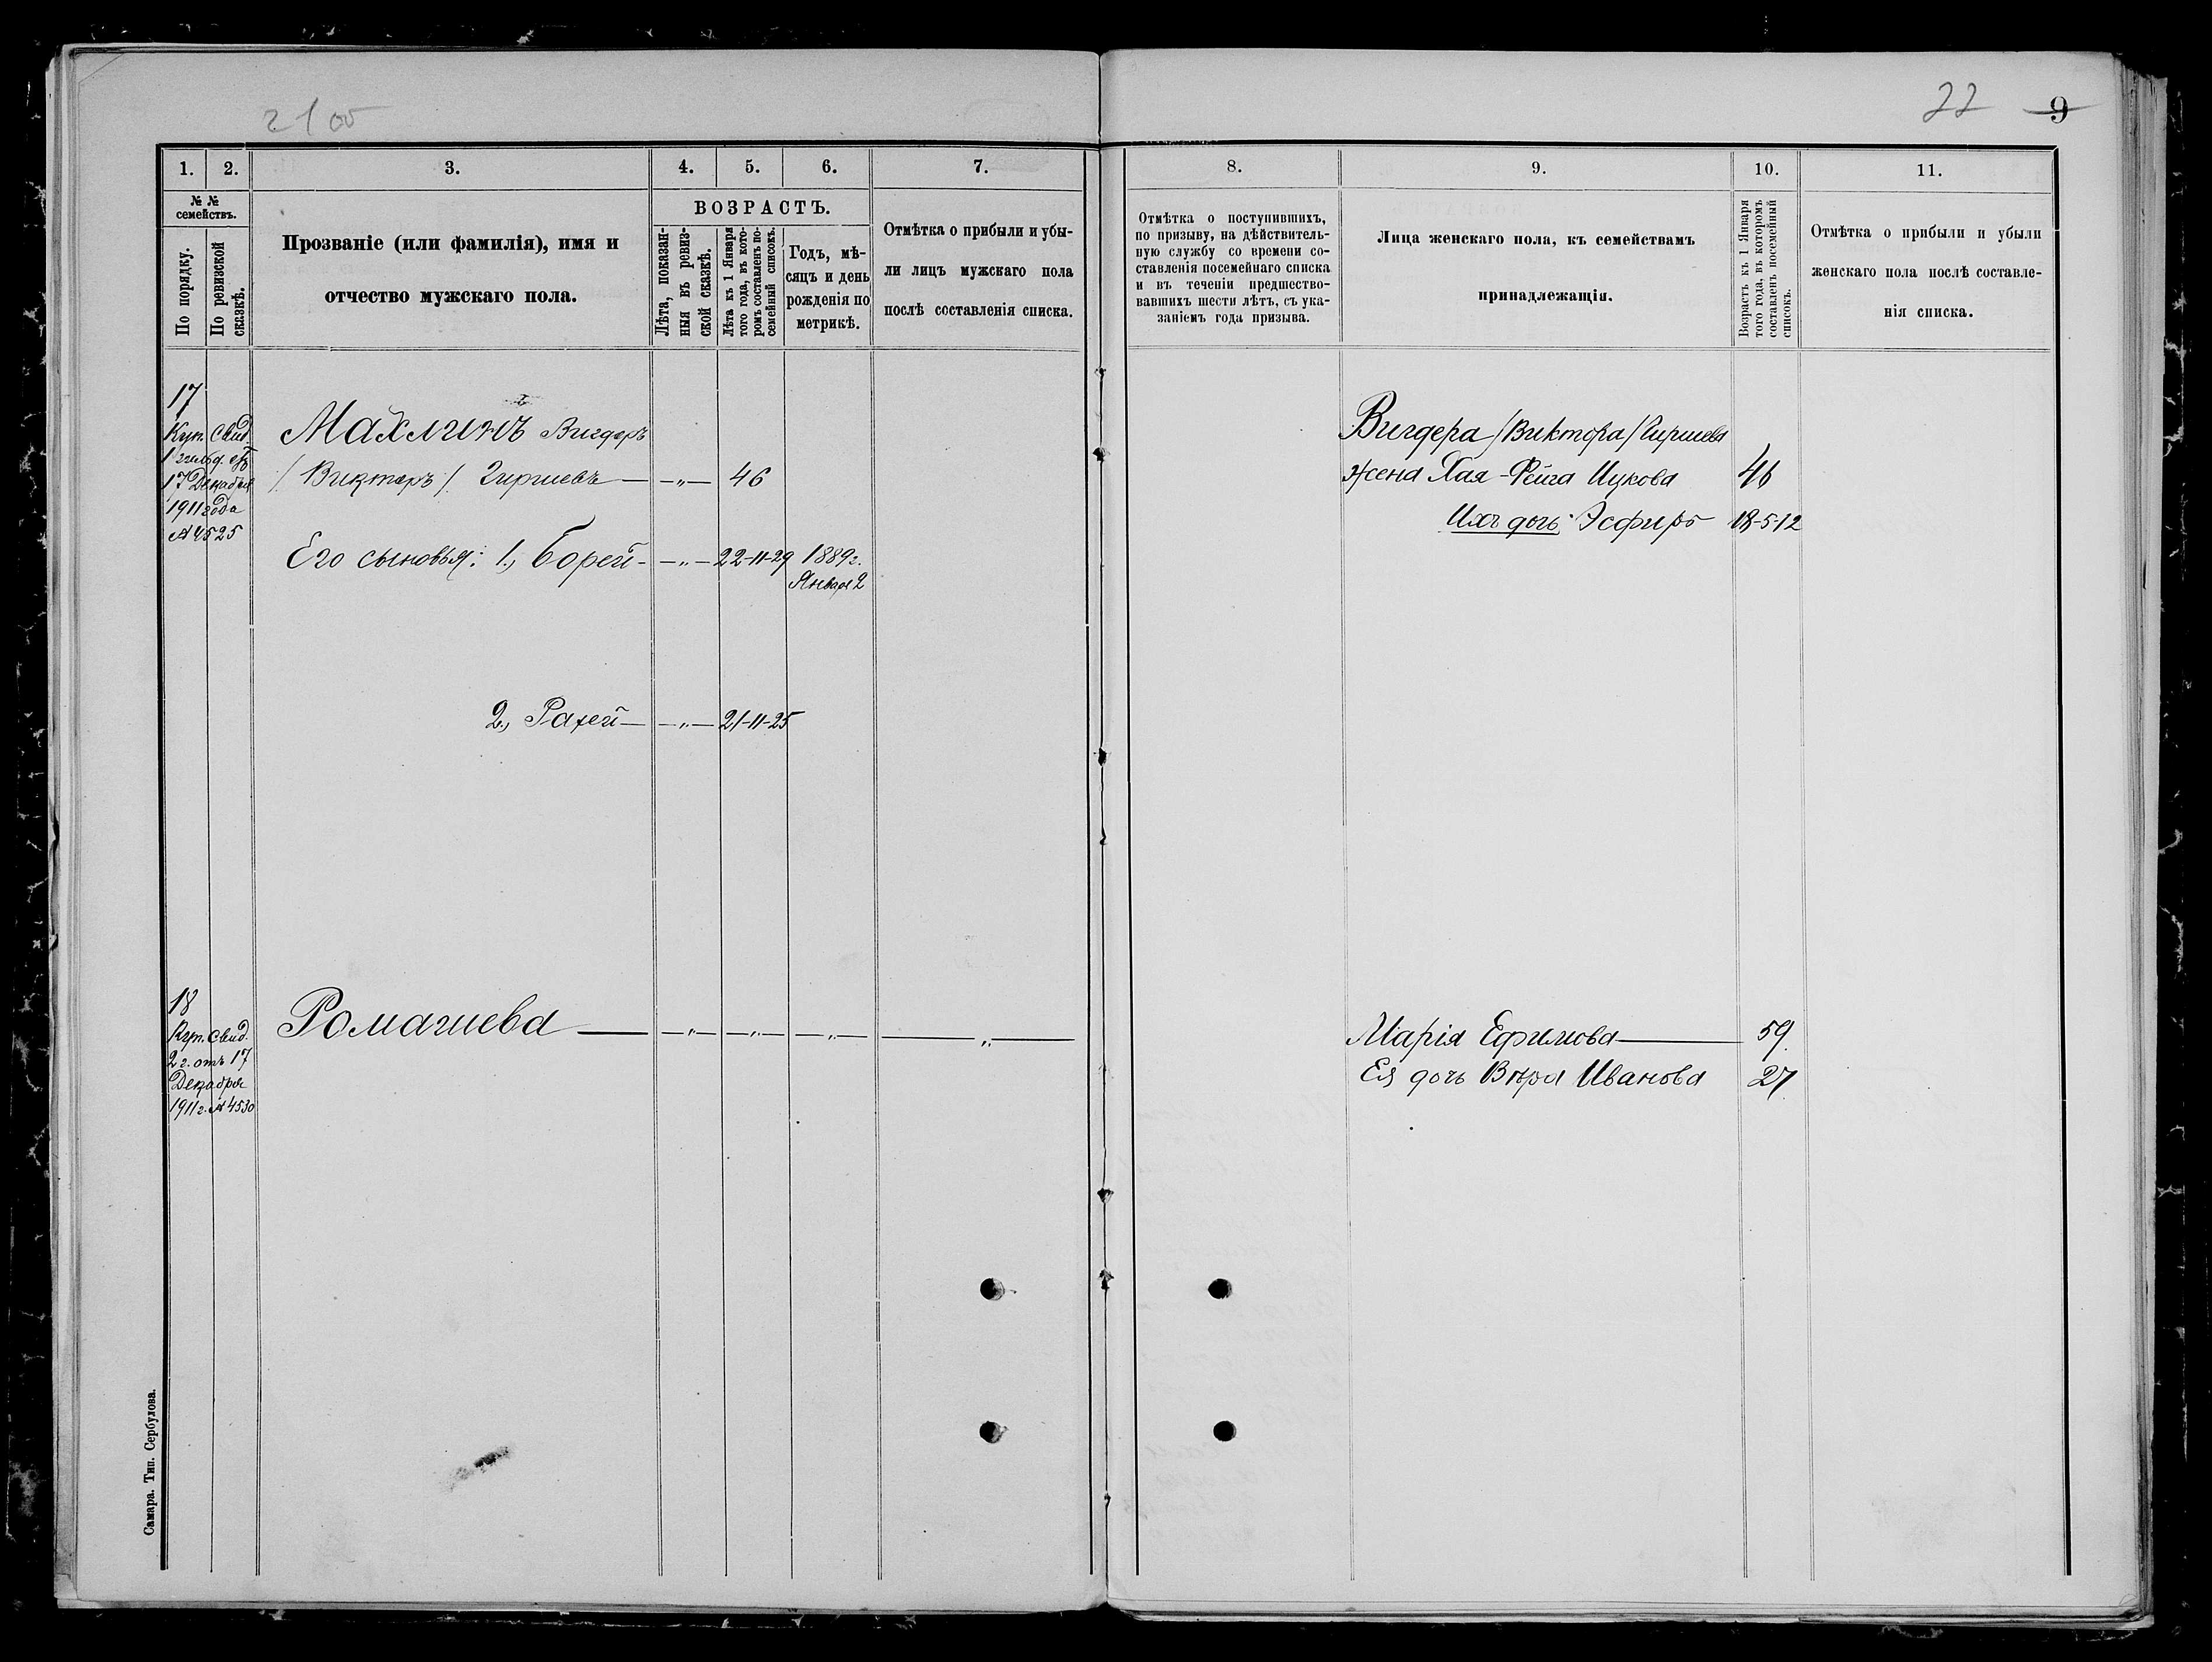 2100
22 9
1. 2. 3. 4. 5. 6. 7.
№ №
семействъ.
По порядку.
По ревизской
сказкѣ.
Прозваніе (или фамилія), имя и
отчество мужскаго пола.
ВОЗРАСТЪ.
Лѣта, показан-
ныя въ ревиз-
ской сказкѣ.
Лѣта къ 1 Января
того года, въ кото-
ромъ составленъ по-
семейный списокъ.
Годъ, мѣ-
сяцъ и день
рожденія по
метрикѣ.
Отмѣтка о прибыли и убы-
ли лицъ мужскаго пола
послѣ составленія списка.
8. 9. 10. 11.
Отмѣтка о поступившихъ,
по призыву, на дѣйствитель-
ную службу со времени со-
ставленія посемейнаго списка
и въ теченіи предшество-
вавшихъ шести лѣтъ, съ ука-
заніемъ года призыва.
Лица женскаго пола, къ семействамъ
принадлежащія.
Возрастъ къ 1 Января
того года, въ которомъ
составленъ посемейный
списокъ.
Отмѣтка о прибыли и убыли
женскаго пола послѣ составле-
нія списка.
17
Куп. свид.
1 гильд. отъ
17 Декабря
1911 года
№ 4525
Махлинъ Вигдоръ
/Викторъ/ Гиршевъ — —„— 46
Его сыновья: 1., Борей - —„— 22-11-29 1889 г.
Января 2
2., Рахей — —„— 21-11-25
Вигдера /Виктора/ Гиршева
жена Хая-Фейга Ицкова 46
Ихъ дочь Эсфирь 18-5-12
18
Куп. свид.
2 г. отъ 17
Декабря
1911 г. № 4530
Ромашева — —„— —„— —„— —„—
Марія Ефимова — 59
Ея дочь Вѣра Иванова 27
Самара. Тип. Сербулова.